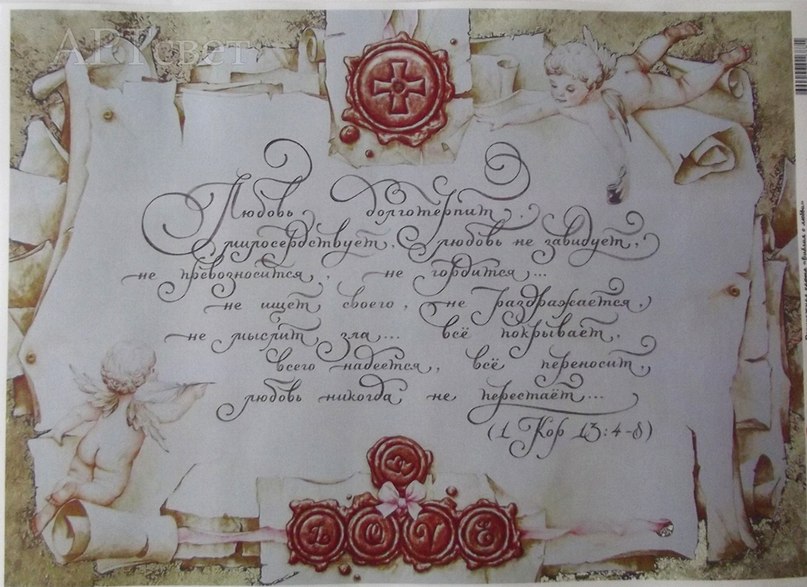 АРТсвет
Любовь долготерпит,
милосердствует, любовь не завидует,
не превозносится, не гордится...
не ищет своего, не раздражается,
не мыслит зла... всё покрывает,
всего надеется, всё переносит,
любовь никогда не перестаёт...
(1 Кор 13:4-8)
L O V E